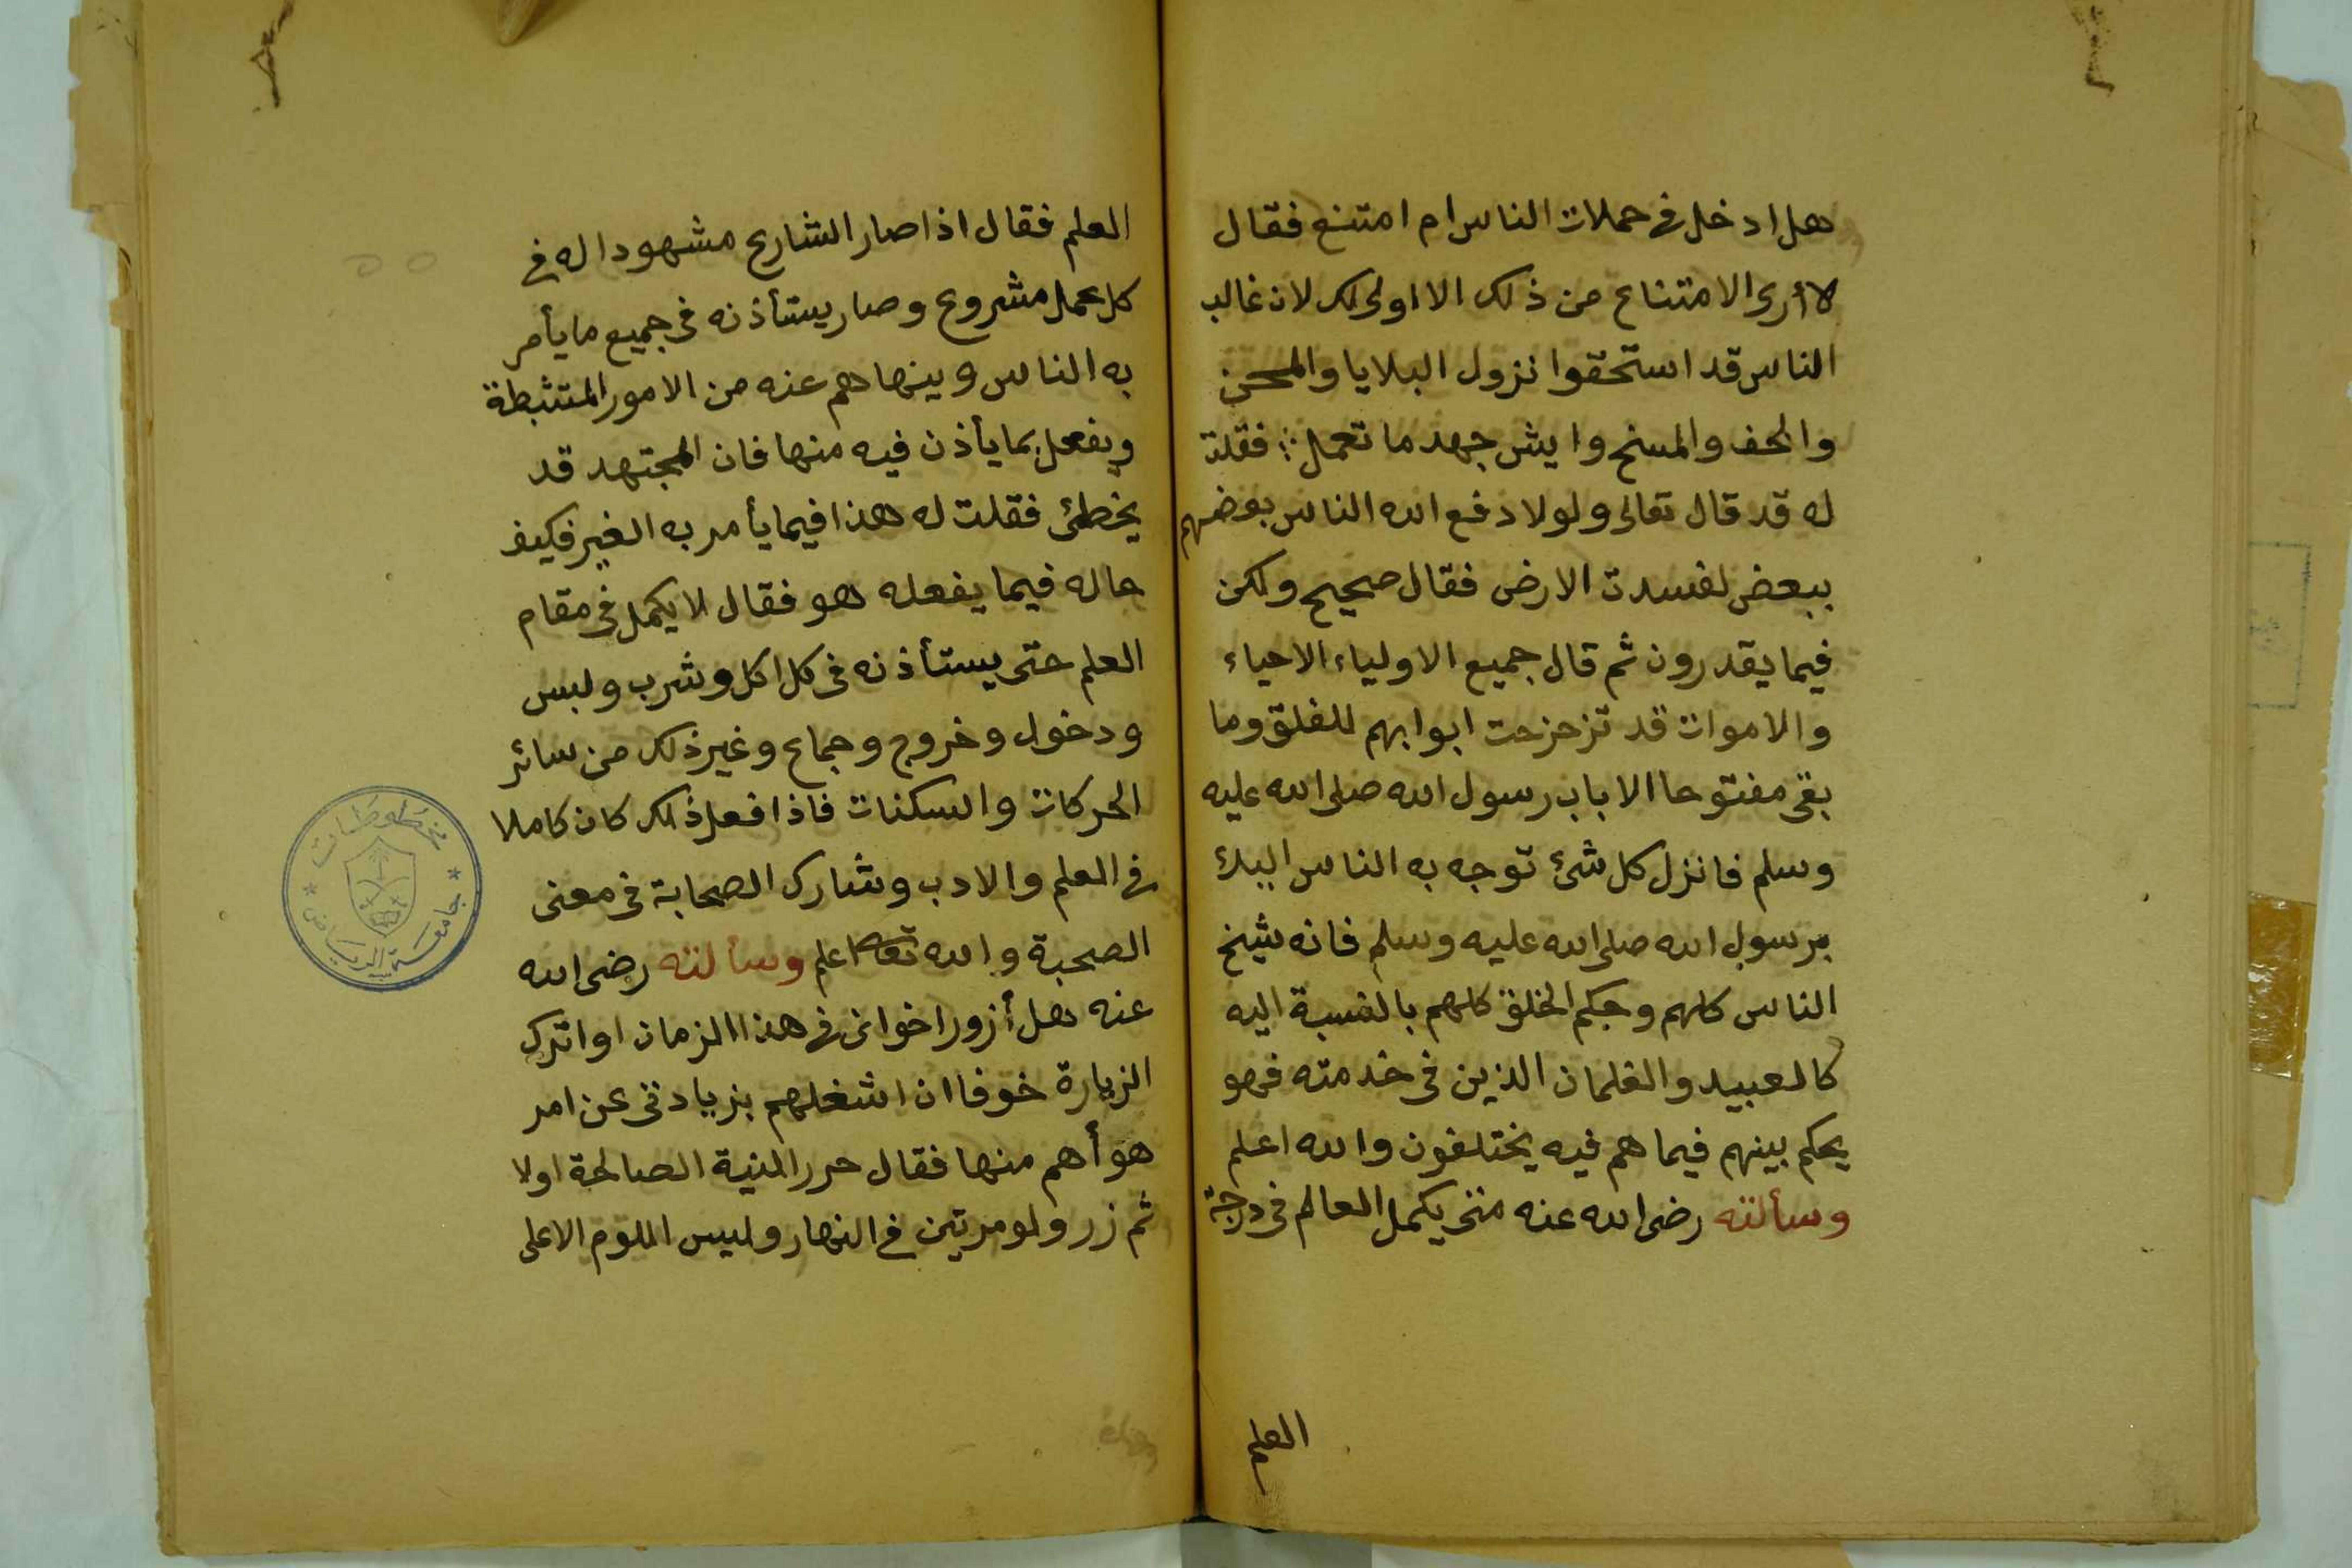 هل ادخل في حملات الناس ام امتنع فقال
لا أرى الامتناع من ذلك الا اولى لك لان غالب
الناس قد استحقوا نزول البلايا والمحن
والخف والمسخ وايش جهد ما تعمل ؛ فقلت
له قد قال تعالى ولولا دفع الله الناس بعضهم
ببعض لفسدت الارض فقال صحيح ولكن
فيما يقدرون ثم قال جميع الاولياء الاحياء
والاموات قد تزحزحت ابوابهم للغلق وما
بقى مفتوحا الا باب رسول الله صلى الله عليه
وسلم فانزل كل شئ توجه به الناس اليك
برسول الله صلى الله عليه وسلم فانه شيخ
الناس كلهم وحكم الخلق كلهم بالنسبة اليه
كالعبيد والغلمان الذين فى خدمته فهو
يحكم بينهم فيما هم فيه يختلفون والله اعلم
وسألته رضى الله عنه متى يكمل العالم فى درجة
العلم
العلم فقال اذا صار الشارع مشهودا له في
كل عمل مشروع وصار يستأذنه فى جميع ما يأمر
به الناس وينهاهم عنه من الامور المتثبطة
ويفعل بما يأذن فيه منها فان المجتهد قد
يخطئ فقلت له هذا فيما يأمر به الغير فكيف
حاله فيما يفعله هو فقال لا يكمل فى مقام
العلم حتى يستأذنه فى كل اكل وشرب ولبس
ودخول وخروج وجماع وغير ذلك من سائر
الحركات والسكنات فاذا فعل ذلك كان كاملا
في العلم والادب وشارك الصحابة فى معنى
الصحبة والله تعالى اعلم وسألته رضى الله
عنه هل أزور اخوانى فى هذا الزمان او اترك
الزيارة خوفا ان اشغلهم بزيادتى عن امر
هو أهم منها فقال حرر النية الصالحة اولا
ثم زر ولو مرتين في النهار وليس اللوم الا على
مخطوطات
جامعة الرياض